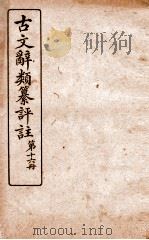 古文辭類纂評註
第十六冊
mtoou.info